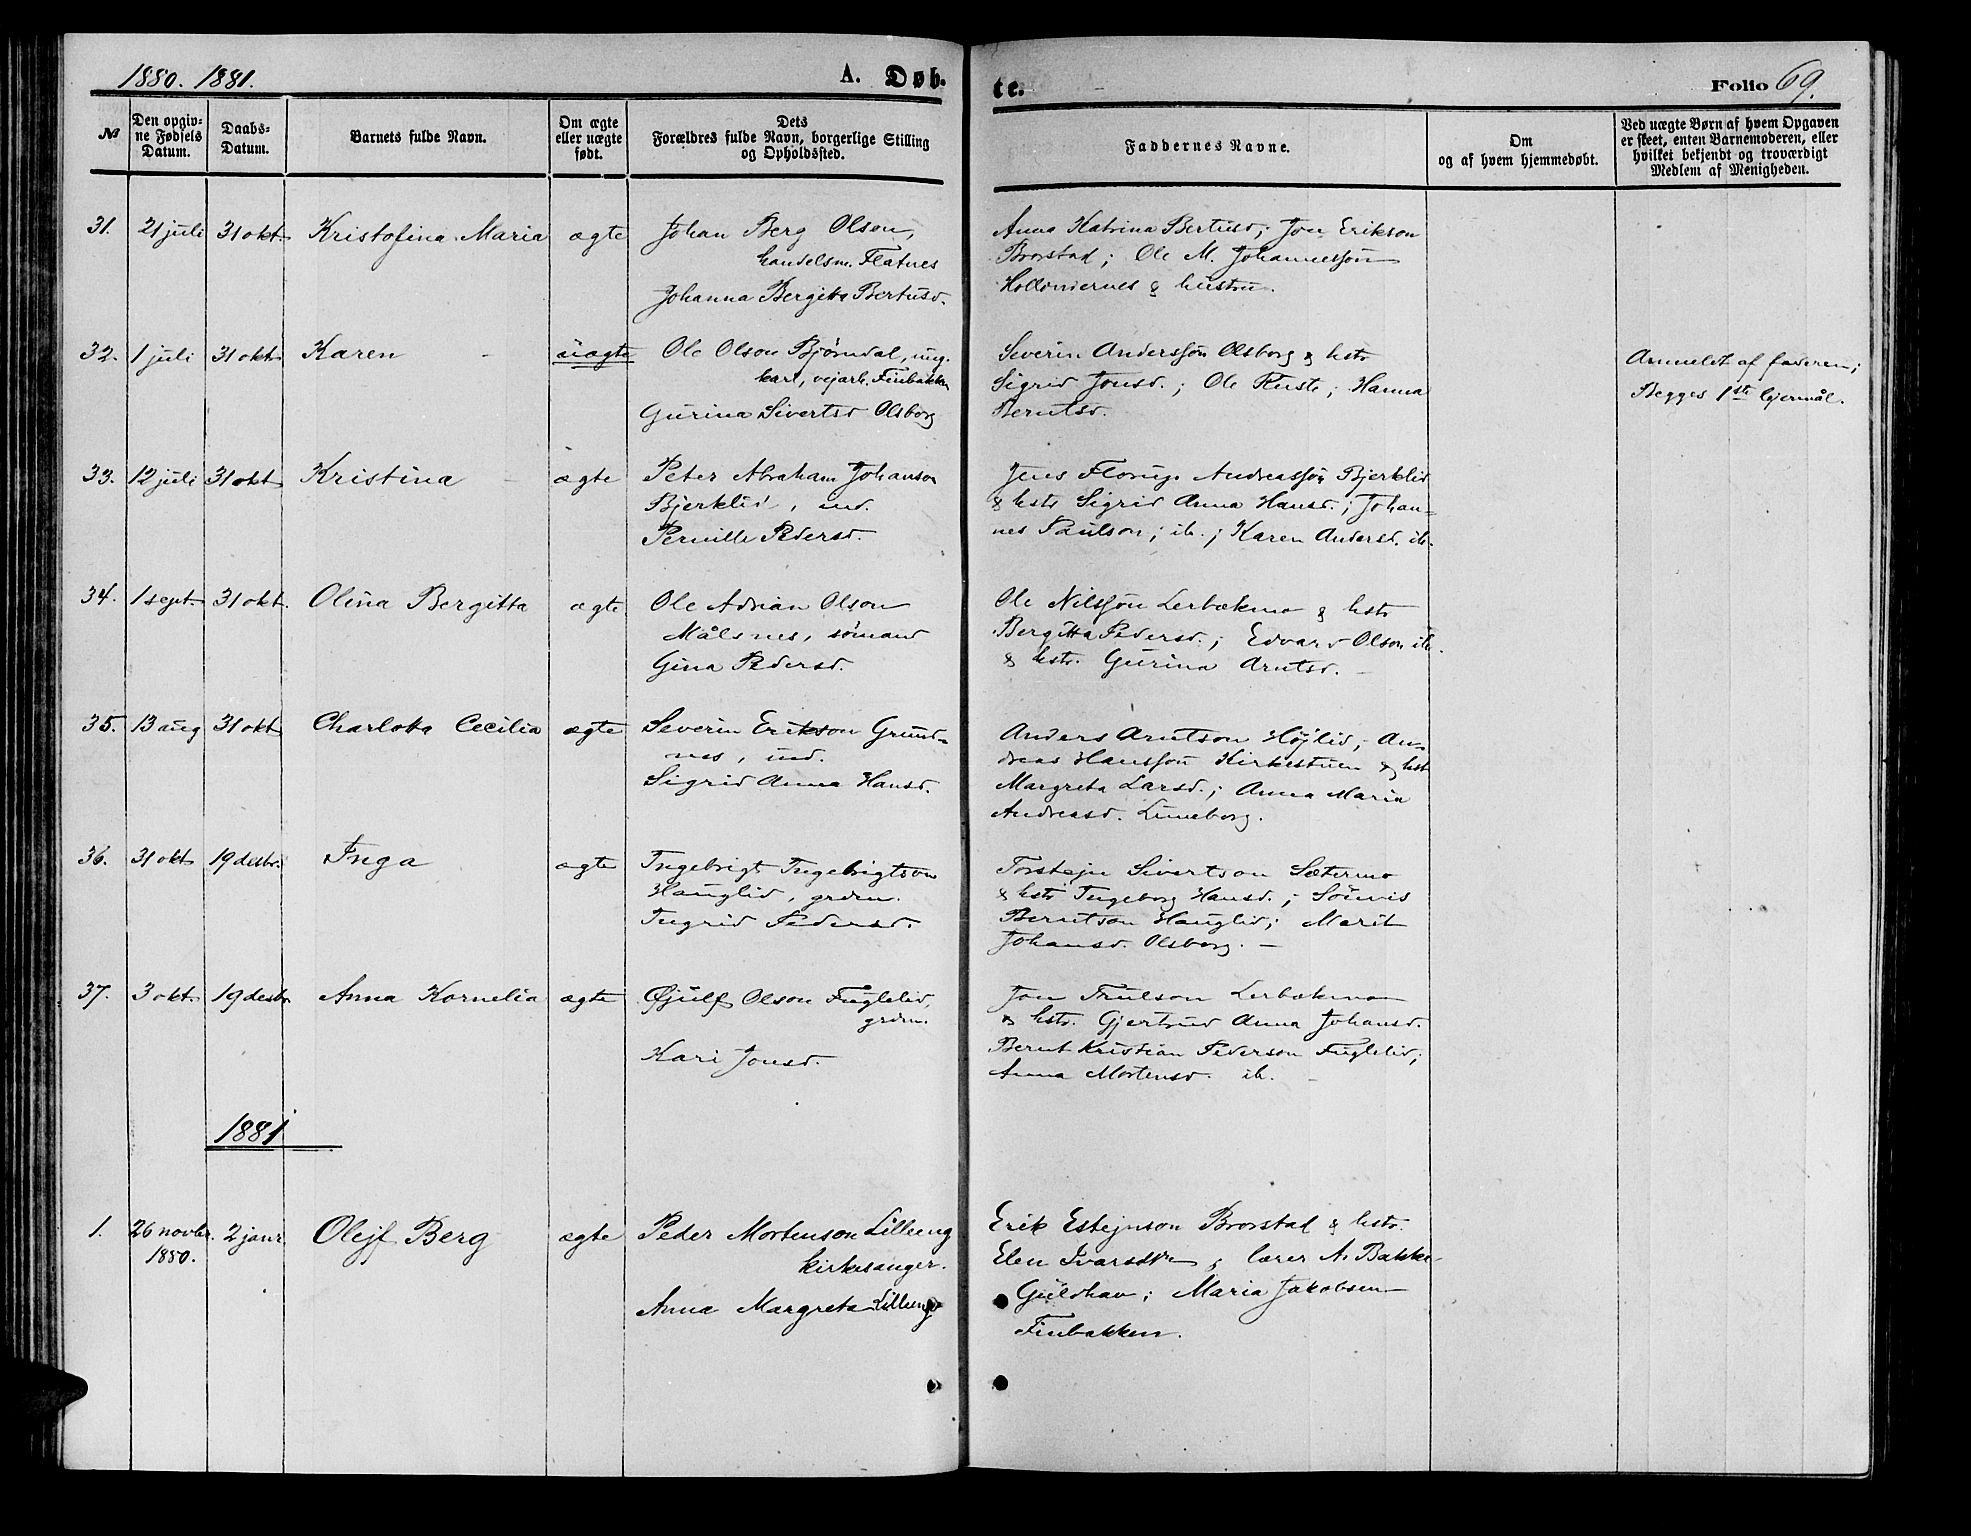 1880. 1881.
A. Døb-
te.
Folio 69.
№
Den opgiv-
ne Fødsels
Datum.
Daabs-
Datum.
Barnets fulde Navn.
Om ægte
eller uægte
født.
Dets
Forældres fulde Navn, borgerlige Stilling
og Opholdssted.
Faddernes Navne.
Om
og af hvem hjemmedøbt.
Ved uægte Børn af hvem Opgaven
er skeet, enten Barnemoderen, eller
hvilket bekjendt og troværdigt
Medlem af Menigheden.
31. 21 juli 31 okt. Kristofina Maria ægte Johan Berg Olson,
handelsm. Flatnes
Johanna Bergitta Bertusd.
Anna Katrina Bertusd; Jon Erikson
Brorstad; Ole M. Johannesson
& hustru.
32. 1 juli 31 okt. Karen uægte Ole Olson Bjørndal, ung-
karl, vejarb. Finbakken
Gurina Sivertsd Olsborg
Severin Andersson Olsborg & hstr
Sigrid Jonsd.; Ole Ruste; Hanna
Berntsd.
Anmeldt af faderen;
Begges 1ste lejermål.
33. 12 juli 31 okt Kristina ægte Peter Abraham Johanson
Bjerklid, ind.
Pernille Pedersd.
Jens Florup Andreasson Bjerklid
& hstr Sigrid Anna Hansd.; Johan-
nes Paulson, ib.; Karen Andersd. ib.
34. 1 sept. 31 okt. Olina Bergitta ægte Ole Adrian Olson
Målsnes, sömand
Gina Pedersd.
Ole Nilsson Lerbækmo & hstr
Bergitta Pedersd.; Edvard Olson ib.
& hstr. Gurina Arntsd.
35. 13 aug 31 okt Charlotta Cecilia ægte Severin Erikson Grund-
nes, ind.
Sigrid Anna Hansd.
Anders Arntson Höjlid; An-
dreas Hansson Kirkestuen & hst
Margreta Larsd.; Anna Maria
Andreasd. Luneborg.
36. 31 okt 19 desbr. Inga ægte Ingebrigt Ingebrigtson
Hauglid, grdm.
Ingrid Pedersd.
Torstejn Sivertson Sætermo
& hstr Ingeborg Hansd.;
Berntson Hauglid; Marit
Johansd. Olsborg.
37. 3 okt. 19 desbr. Anna Kornelia ægte Øjulf Olson Fuglelid,
grdm.
Kari Jonsd.
Jon Trulson Lerbækmo
& hstr. Gjertrud Anna Johansd.
Bernt Kristian Pederson Fuglelid;
Anna Mortensd. ib.
1881
1. 26 novbr. 2 janr. Olejf Berg ægte Peder Mortenson Lilleeng
1880.
kirkesanger.
Anna Margreta Lilleeng
Erik Estejnson Brorstad & hstr.
Elen Ivarsdtr; lærer A. Bakke-
Guldhav; Maria Jakobsen
Finbakken.